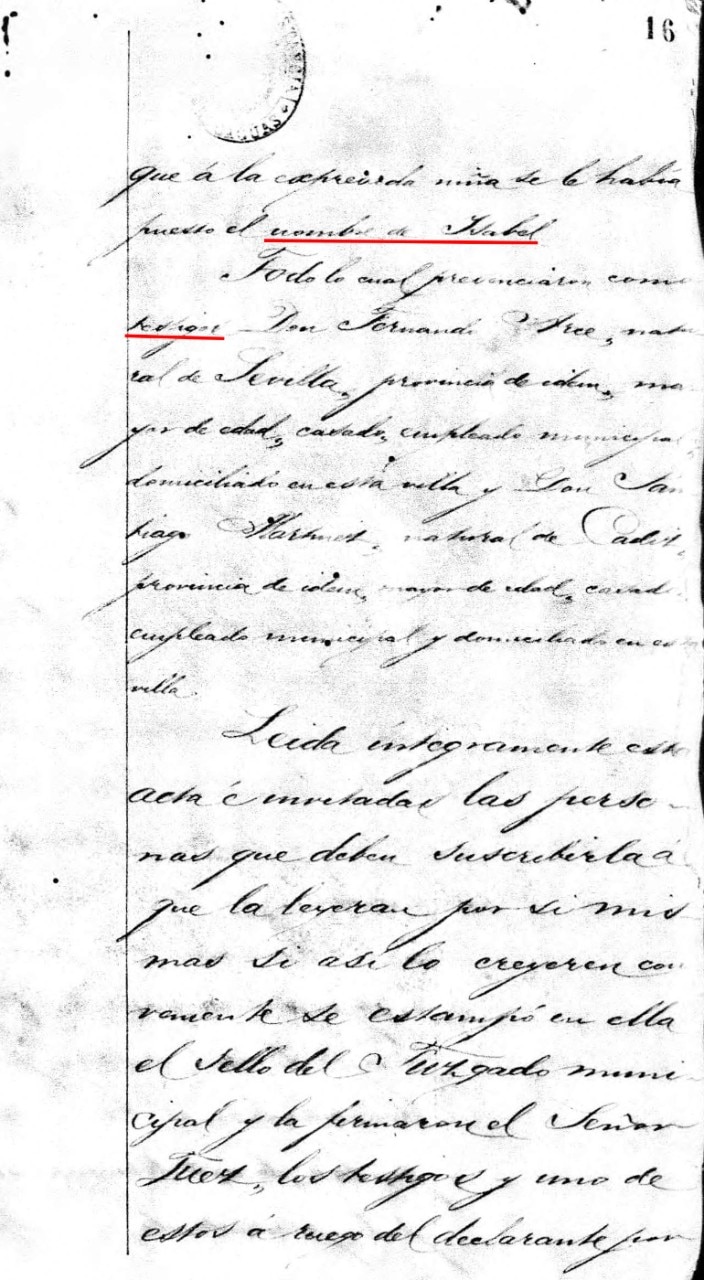 16
AGUAS
que á la expresada niña se le había
puesto el nombre de Isabel
Todo lo cual presenciaron como
testigos Don Fernando Arce, natu
ral de Sevilla, provincia de idem, ma
yor de edad, casado, empleado municipal,
domiciliado en esta villa y Don San
tiago Martinez, natural de Cadiz,
provincia de idem, mayor de edad, casado
empleado municipal y domiciliado en esta
villa.
Leida íntegramente esta
acta é invitadas las perso-
nas que deben suscribirla á
que la leyeran por si mis
mas si asi lo creyeren con
veniente se estampó en ella
el sello del Juzgado muni-
cipal y la firmaron el Señor
Juez, los testigos y uno de
estos á ruego del declarante por